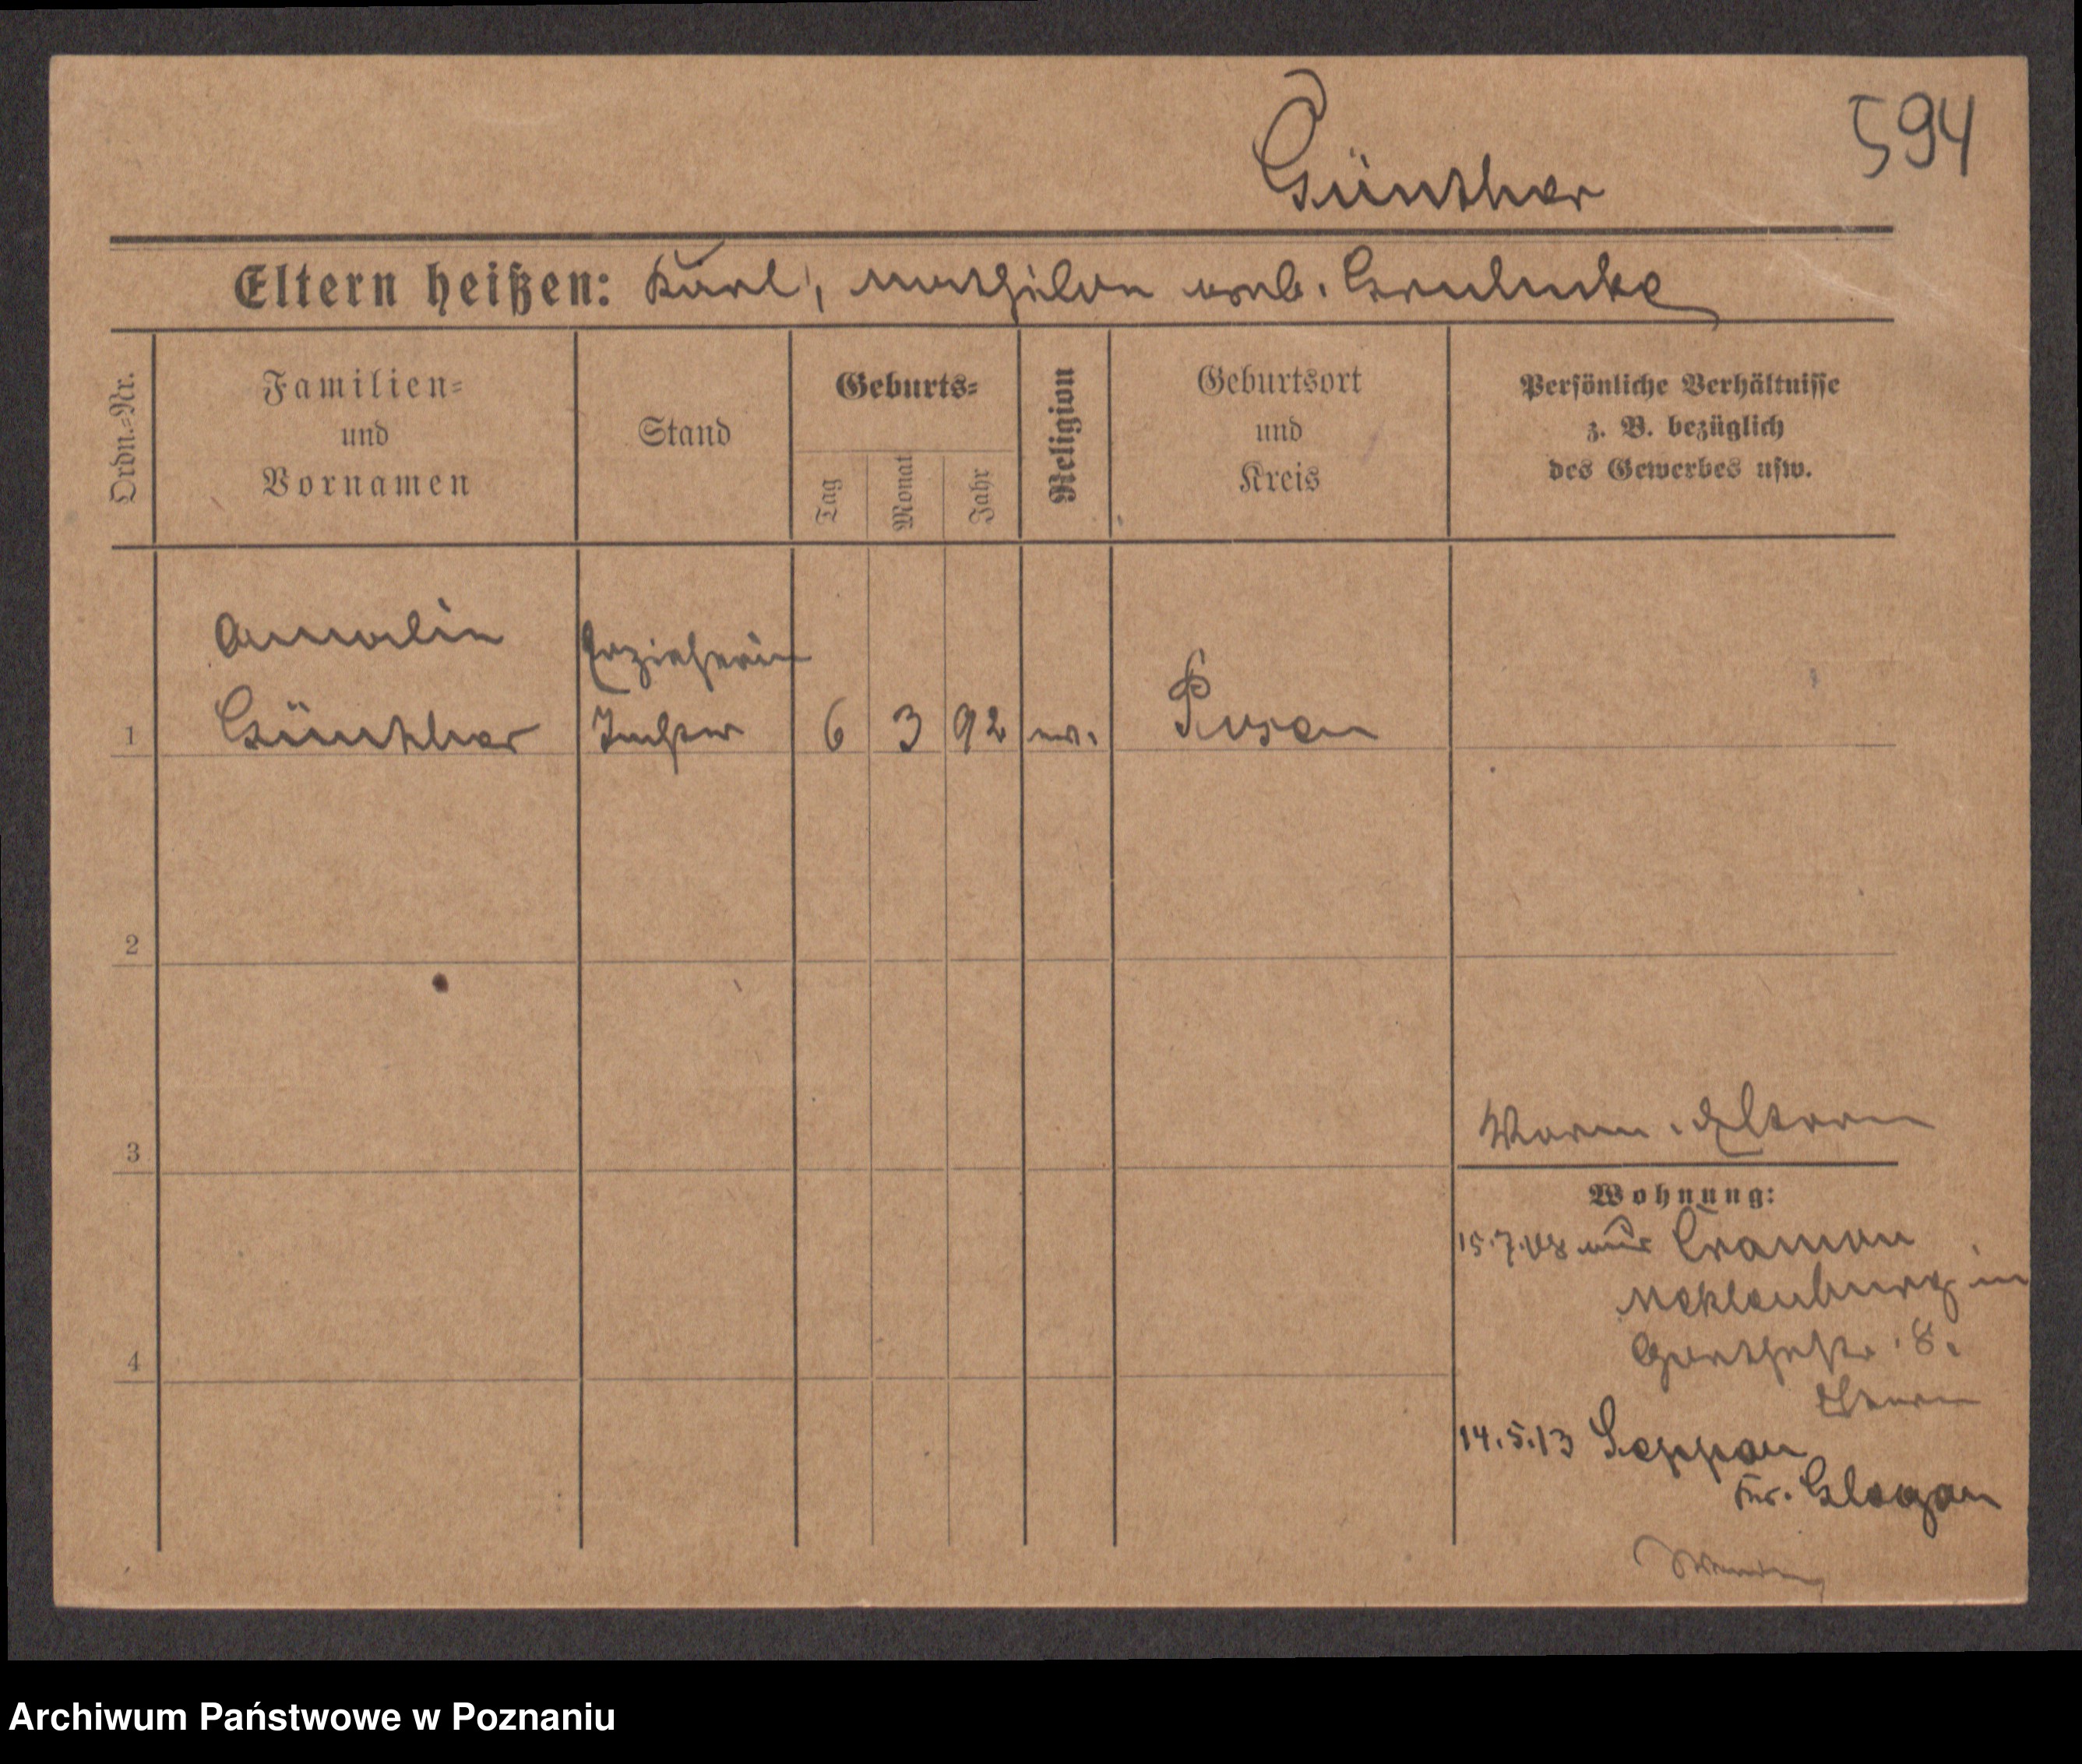 Günther
594
Eltern heißen: Karl, Mathilde geb.
Ordn.=Nr.
Familien=
und
Vornamen
Stand
Geburts=
Tag
Monat
Jahr
Religion
Geburtsort
und
Kreis
Persönliche Verhältnisse
z. B. bezüglich
des Gewerbes usw.
Amalie
Erzieherin
1 Günther Tochter 6 3 92 ev. Posen
2
3
Eltern
Wohnung:
15.7.08 Cramon
Meklenburg in
Goethestr. 8.
4
14.5.13
Kr. Glogau
Archiwum Państwowe w Poznaniu